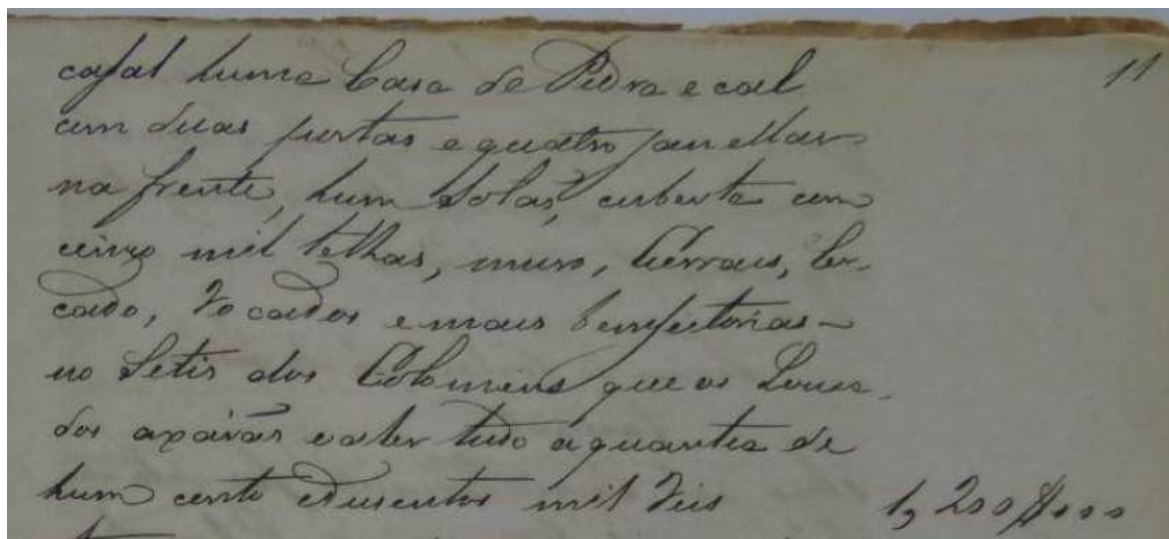 casal huma Casa de Pedra e cal 11
com duas portas e quatro janellas
na frente, hum Solaõ, cuberta com
cinco mil telhas, muro, Currais, Cer-
cado, Rocados e mais bemfeitorias -
no Setio dos Colomins que os Louva-
dos axaraõ valer tudo a quantia de
hum conto e dusentos mil Reis 1,200$000